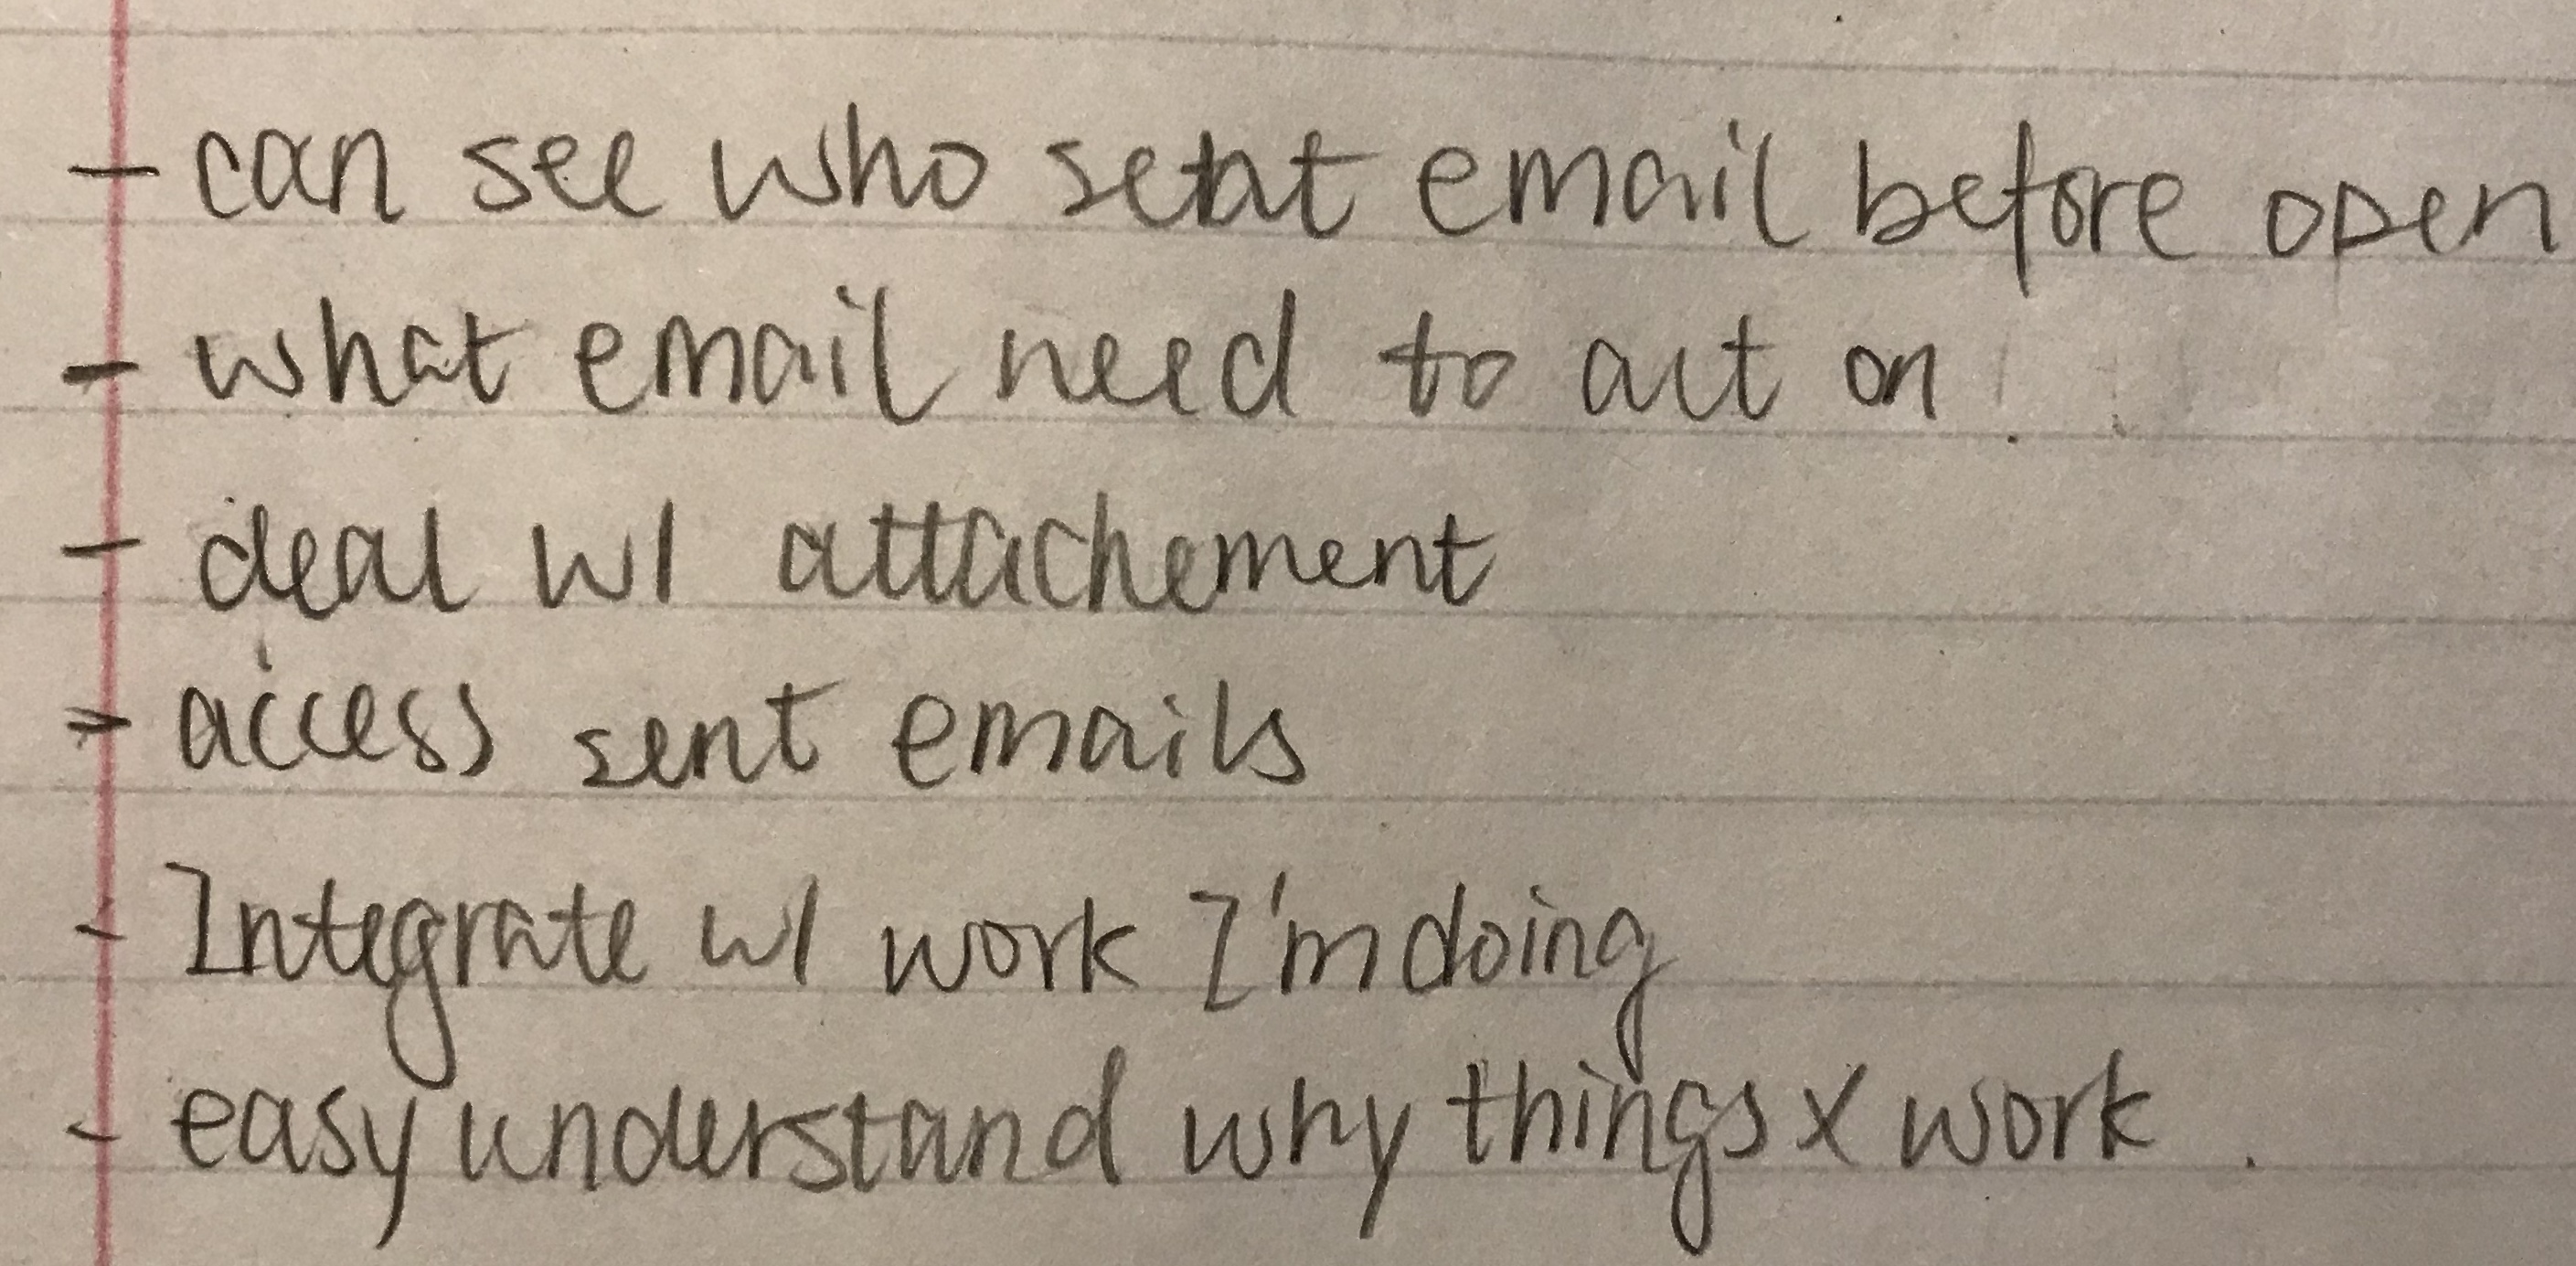 - can see who sent email before open
- what email need to act on
- deal w/ attachement
- access sent emails
- Integrate w/ work I'm doing
- easy understand why things x work.